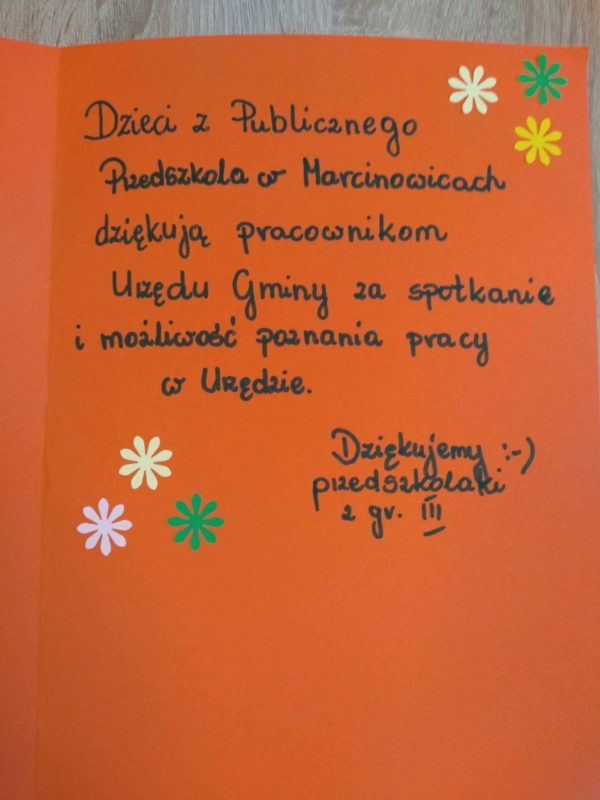 Dzieci z Publicznego
Przedszkola w Marcinowicach
dziękują pracownikom
Urzędu Gminy za spotkanie
i możliwość poznania pracy
w Urzędzie.
Dziękujemy :-)
przedszkolaki
z gr. III